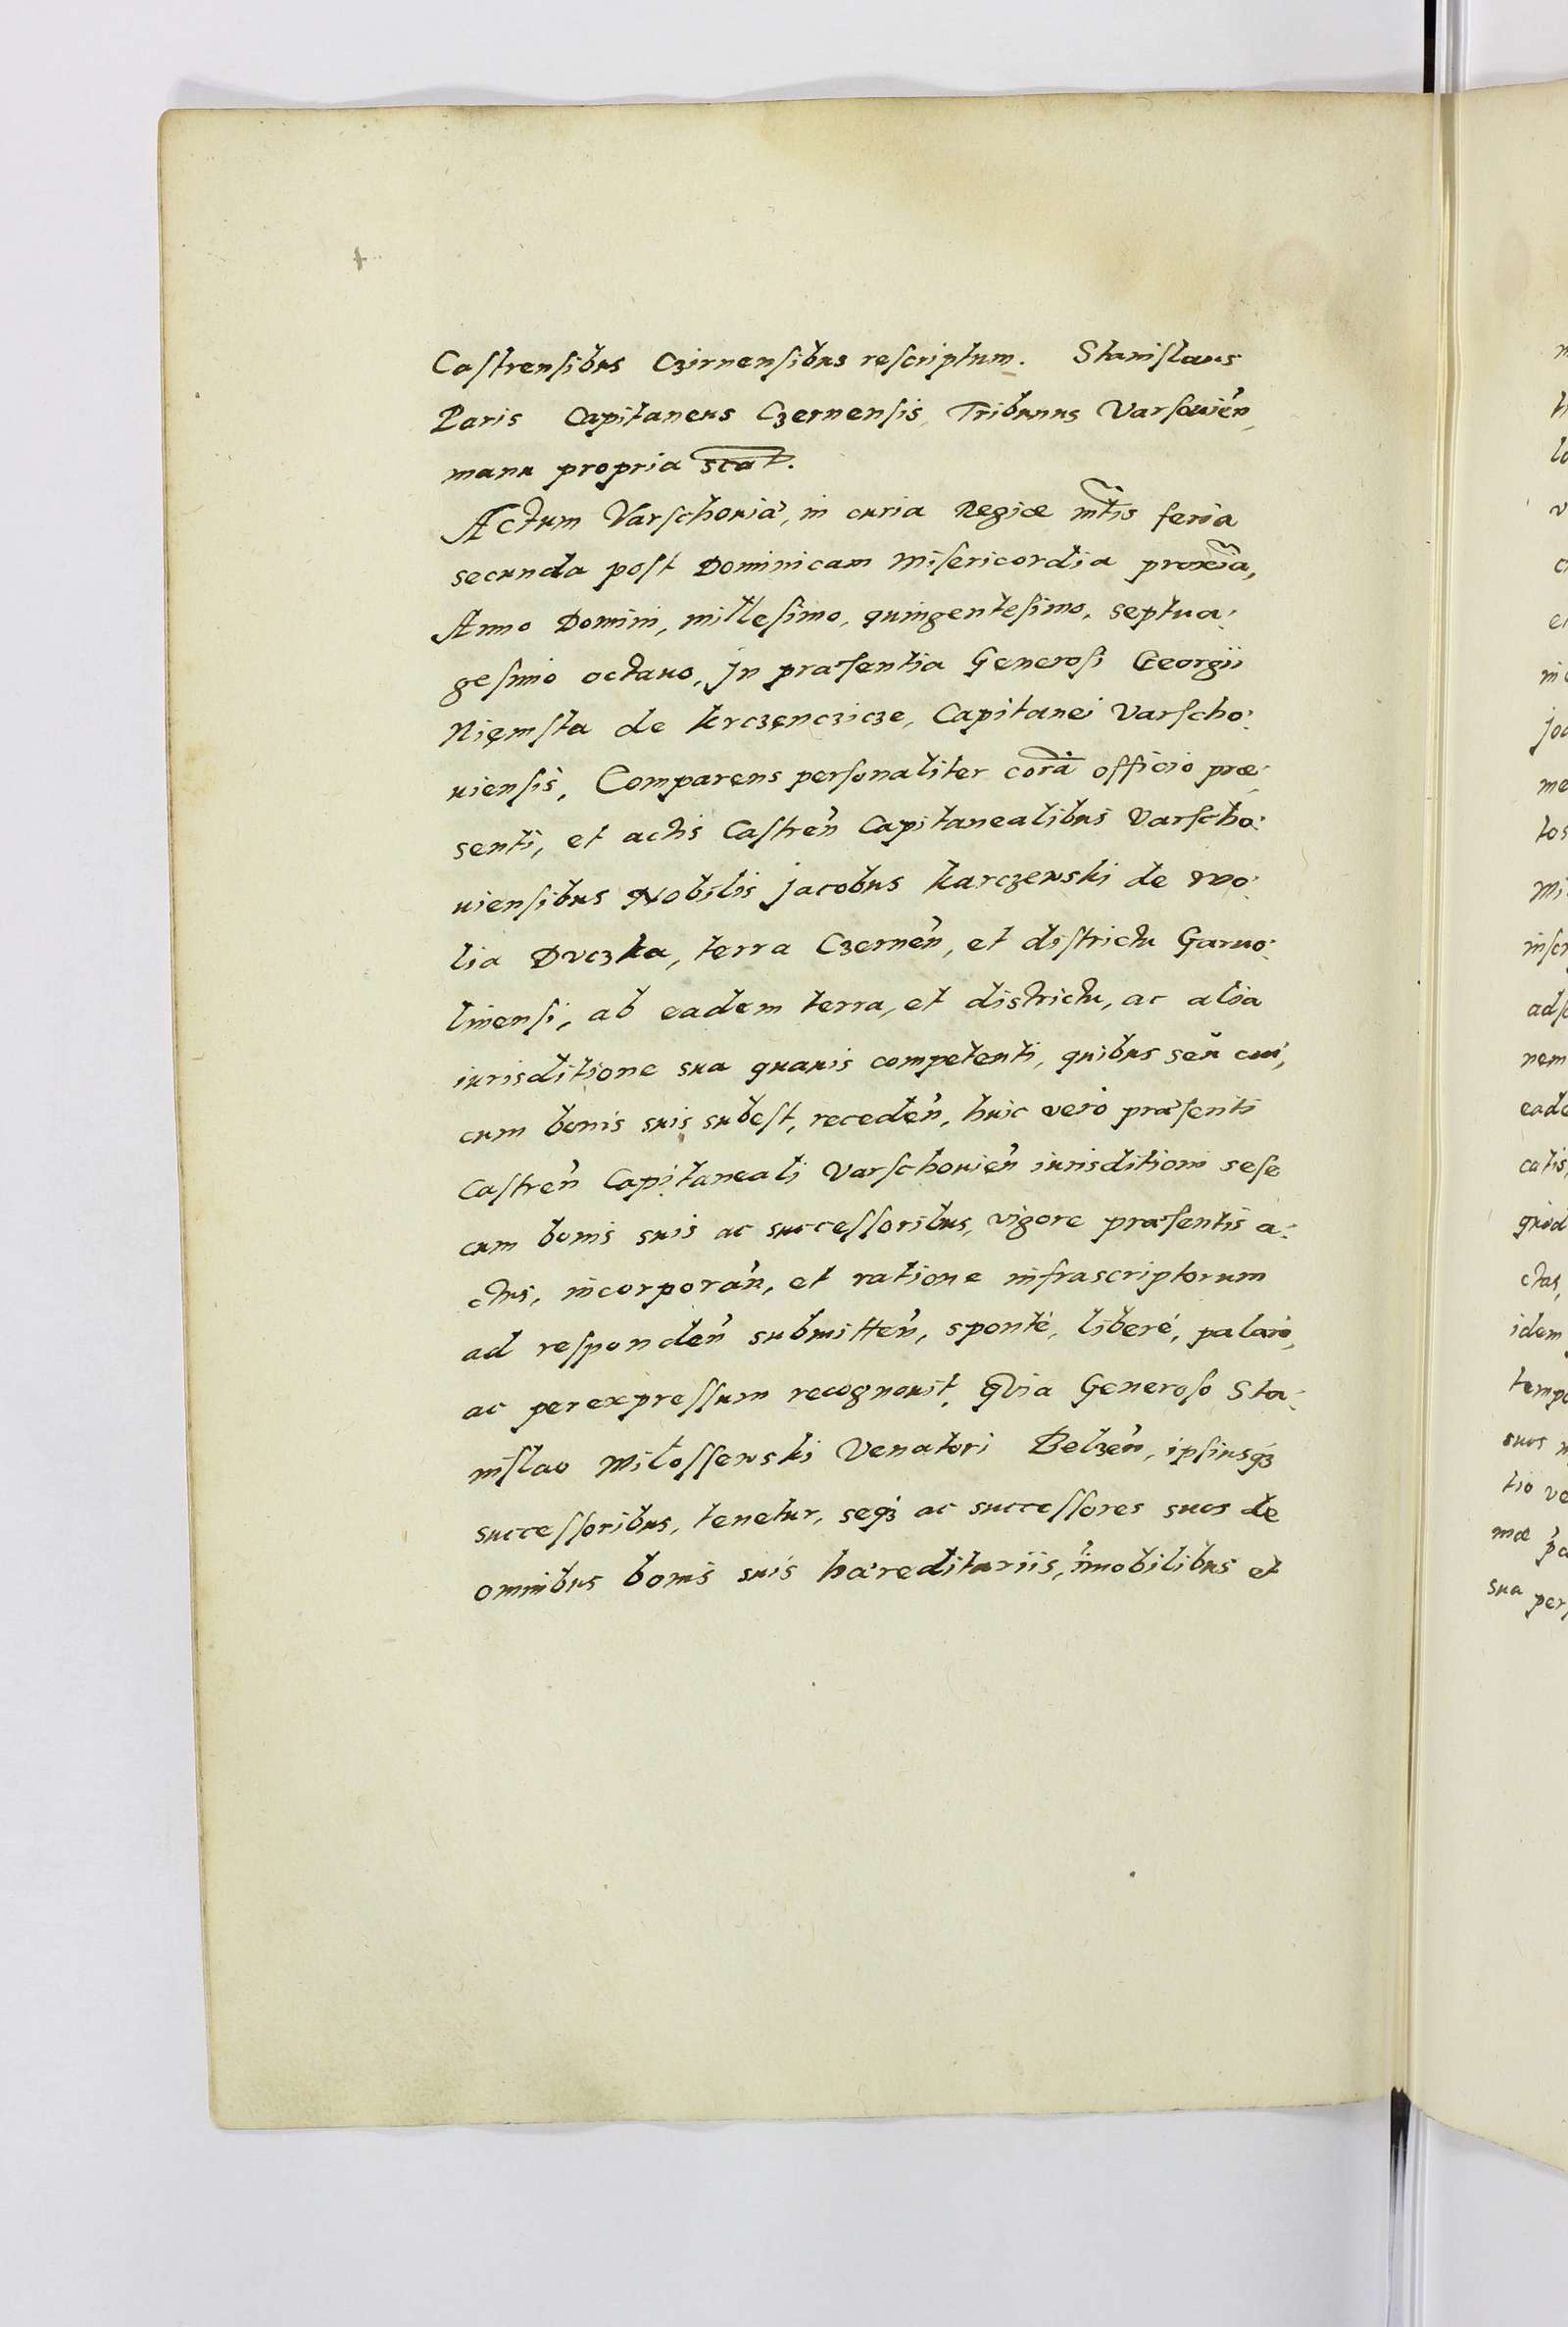 Castrensibus Czirnensibus rescriptum. Stanislaus
Paris Capitaneus Czernensis, Tribunus Varsouień,
manu propria scat.
Actum Varschouiæ, in curia Regiæ mtis feria
secunda post Dominicam Misericordia proxia,
Anno Domini, millesimo, quingentesimo, septua:
gesimo octauo, Jn præsentia Generosi Georgii
Niemsta de krczęnczicze, Capitanei Varscho:
uiensis, Comparens personaliter corā officio præ:
senti, et actis Castreń Capitanealibus Varscho:
uiensibus Nobilis Jacobus karczewski de wo:
lia Duczka, terra Czerneń, et districtu Garuo:
linensi, ab eadem terra, et districtu, ac alia
iurisditione sua quauis competenti, quibus seu cui,
cum bonis suis subest, recedeń, huic vero præsenti
Castreń Capitaneali Varschouień iurisditioni sese
cum bonis suis ac successoribus, vigore præsentis a:
ctus, incorporań, et ratione infrascriptorum
ad respondeń submitteń, sponté, liberé, palam,
ac per expressum recognouit, Quia Generoso Sta:
nislao Miłossewski Venatori Belzeń, ipsiusq3
successoribus, tenetur, seq3 ac successores suos de
omnibus bonis suis hæreditariis, īmobilibus et